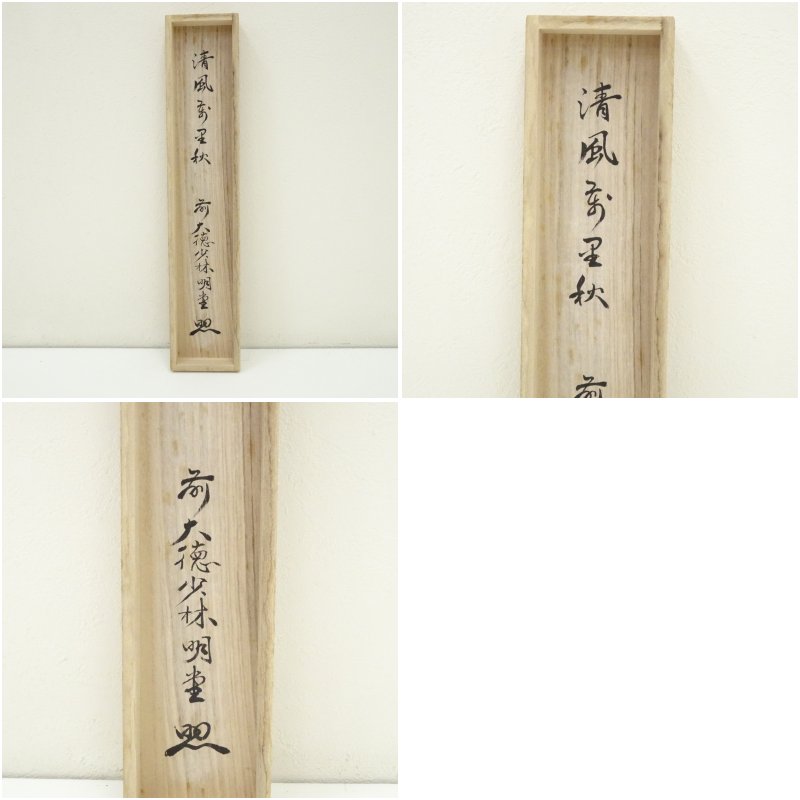 清風萬里秋 前大徳少林明堂 照
清風萬里秋
前
前大徳少林明堂 照